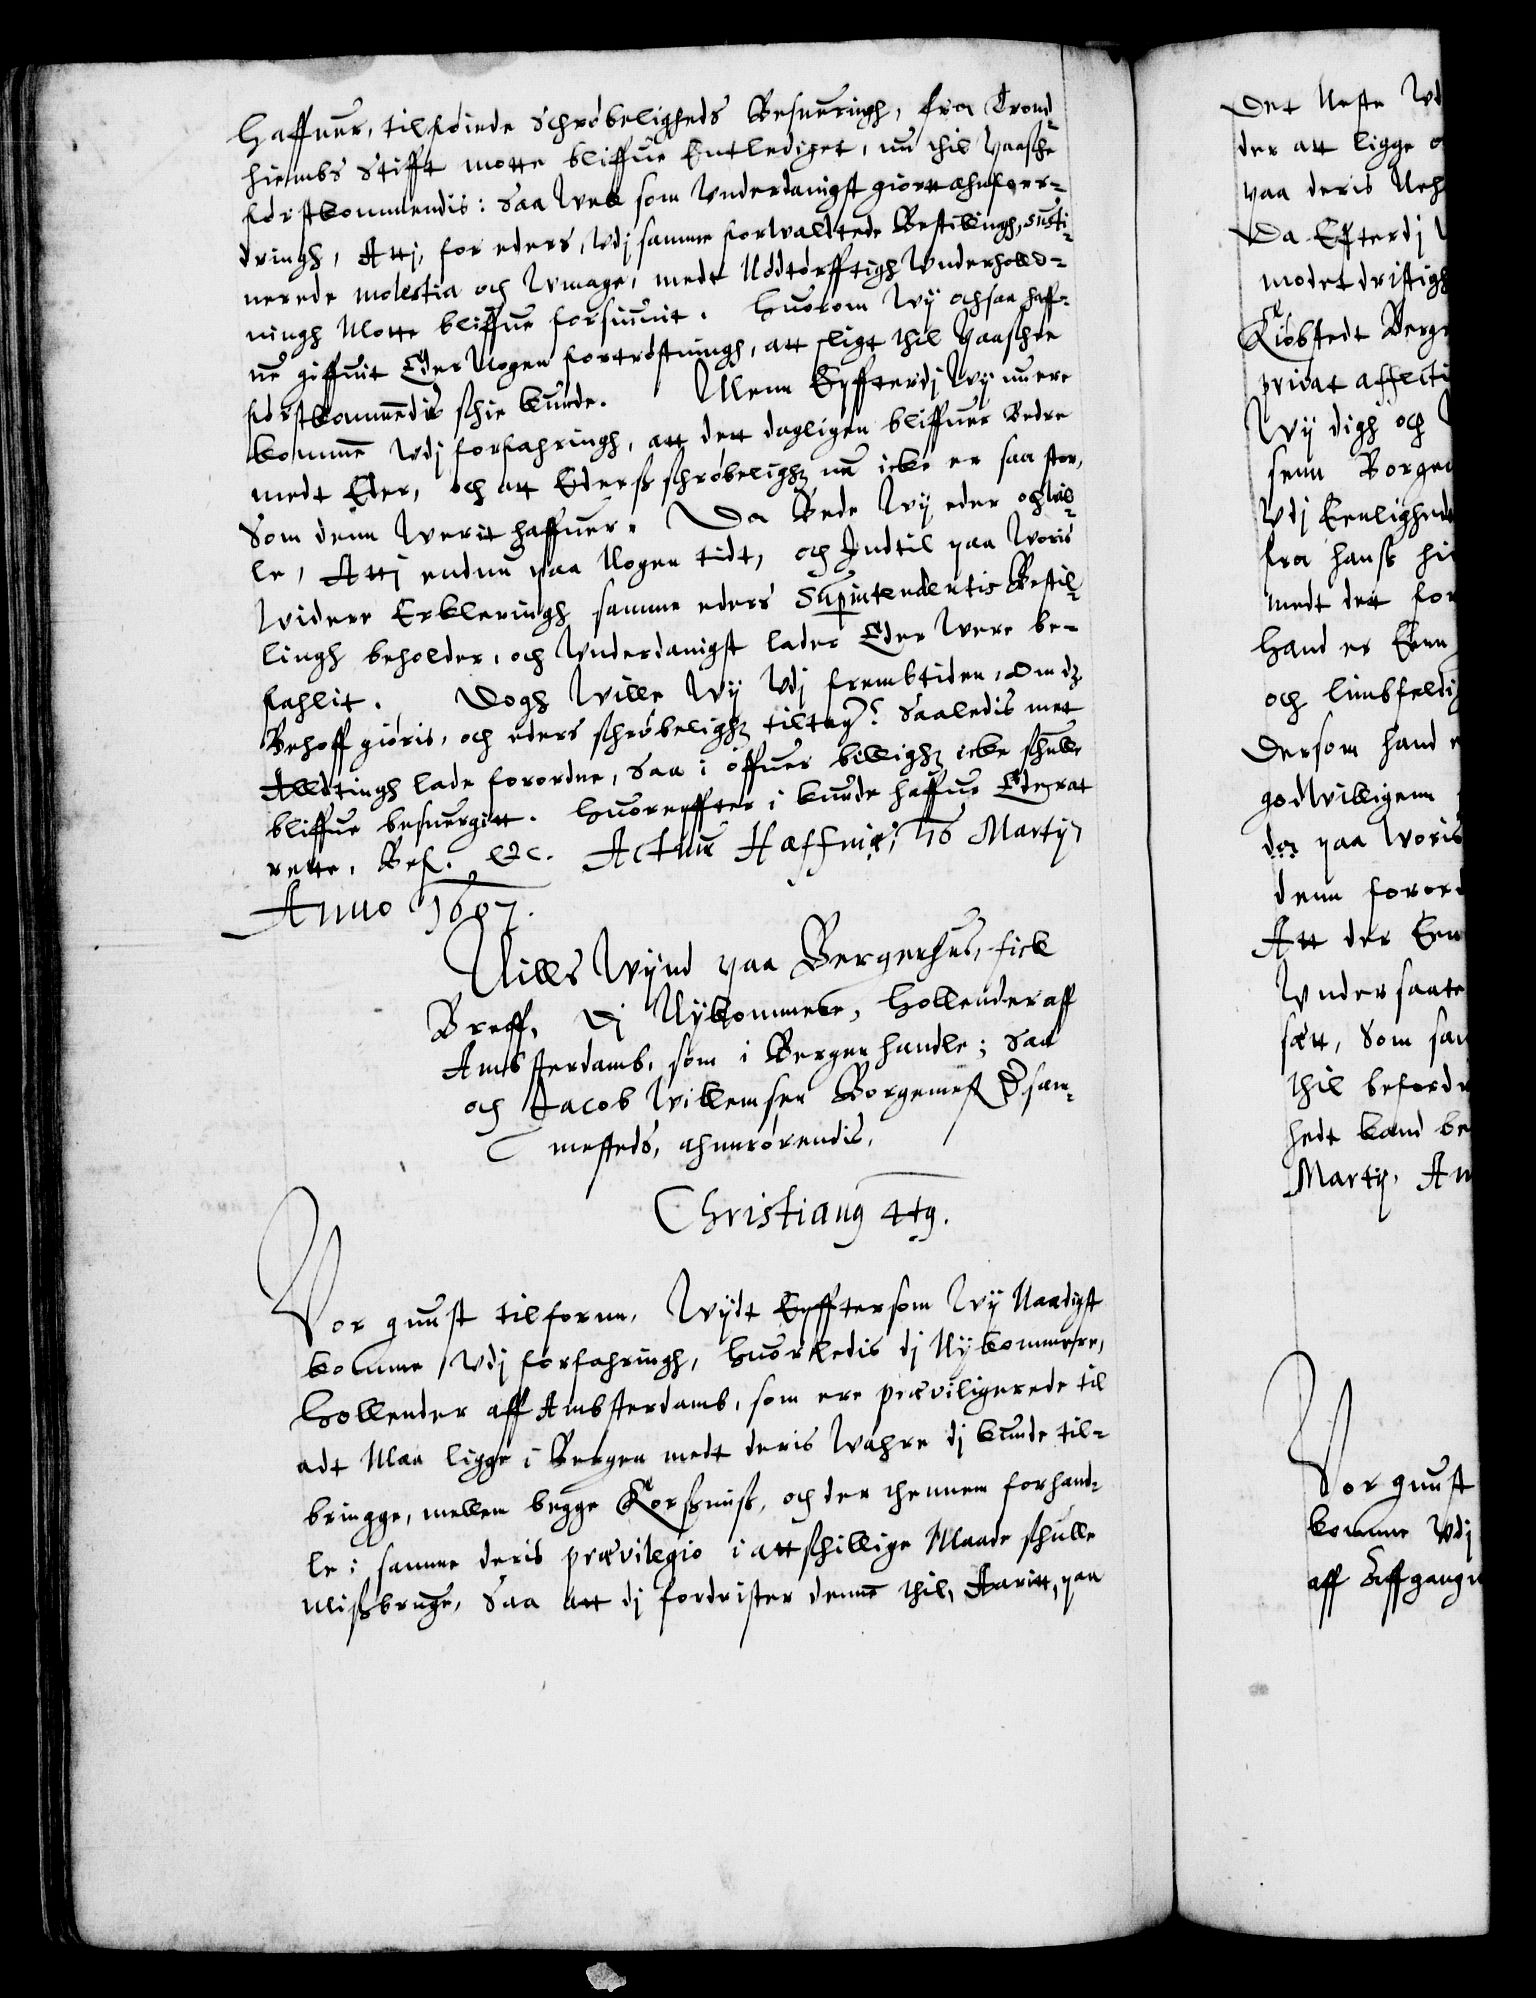 Haffuer, tilføiede Schrøbeligheds Besueringh, fra Trond-
hiembs Stifft motte bliffue Entlediget, nu thil Paasche
førstkommendis: Saa well som Underdanigst giortt ahnfoer-
dringh, Atj, for eders, Udj samme forwaldtede Bestillingh, susti-
nerede molestia och Umage, medt Nødtørfftigh Underhold-
ningh Motte bliffue forsiunit. Huorom Wy ochsaa haff-
ue giffuit Eder Nogen fortrøstningh, att sligt thil Paaschen
førstkommendis schie kunde. Menn Effterdj Wy nu ere
komme Udj forfahringh, att dett dagligen bliffuer Bedre
medt Eder, och att Ederss schrøbelighz nu icke er saa stor,
Som denn Werit haffuer. Da Bede Wy eder och wil-
le, Attj endnu paa Nogen tidt, och Indtil paa Woris
Widere Erkleringh samme eders Superintendentis Bestil-
lingh beholder, och Underdanigst lader Eder Were be-
fahlit. Dogh Wille Wy Udj frembtiden, om dz
Behoff giøris, och eders schrøbelighz tiltager? Saaledis met
Alldtingh lade forordne, Saa i offuer billighz icke schulle
bliffue besuergitt. Huoreffter i kunde haffue Eder at
rette, Bef. etc. Actum Haffniæ, 16 Martij
Anno 1607.
Nills Wynd paa Bergerhus, fick
Breff, Dj Nykommere, Hollender aff
Ambsterdamb, som i Bergen handle; Saa
och Jacob Willemsen Borgemest. der sam-
mesteds, ahnrørendis.
Christianus 4tus.
Vor gunst tilforn, Wydt Effttersom Wy Naadigst
komme Udj forfahringh, huorledis dj Nykommere,
Hollender aff Ambsterdamb, som ere præviligerede til
adt Maa ligge i Bergen medt deris Wahre dj kunde til-
bringge, mellem begge Korssmiss, och der thennem forhand-
le; samme deris prævilegio i attschillige Maade schulle
Missbruge, Saa att dj fordrister denne thil, Aaritt, paa
Det Neste Ud
der att ligge
paa deris
Da Efterdj
modet dristigh
Kiøbstedt Berg
privat affecti
Wy digh och
senn Borge
Udj Eenlighed
fra hanss hi
medt dett for
Hand er Een
och limbfeldi
Dersom hand
godwilligenn
da paa Woris
denn foror
Att der Een
Undersaate
sett, Som sa
thil befordr
hedt kand be
Martij. An
Vor gunst
komme Udj
aff Affgangn